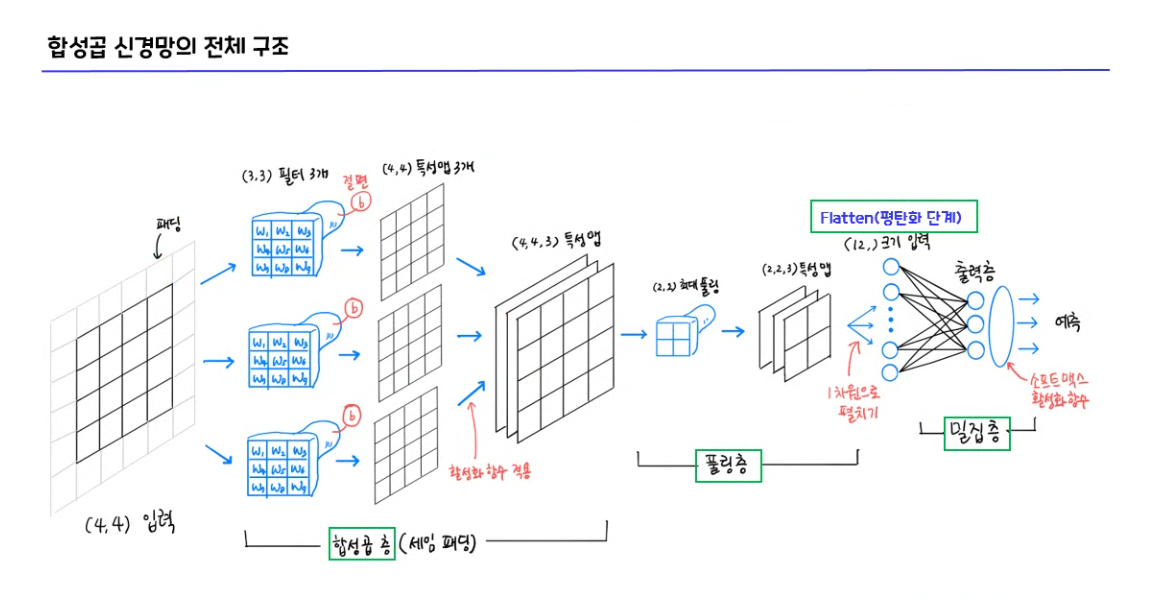 합성곱 신경망의 전체 구조
패딩
(4,4) 입력
(3,3) 필터 3개
절편
b
w₁ w₂ w₃
w₄ w₅ w₆
w₇ w₈ w₉
b
w₁ w₂ w₃
w₄ w₅ w₆
w₇ w₈ w₉
b
w₁ w₂ w₃
w₄ w₅ w₆
w₇ w₈ w₉
(4,4) 특성맵 3개
활성화 함수 적용
(4,4,3) 특성맵
합성곱 층 (세임 패딩)
(2,2) 최대 풀링
(2,2,3) 특성맵
1차원으로
펼치기
풀링층
Flatten(평탄화 단계)
(12,) 크기 입력
출력층
예측
소프트맥스
활성화 함수
밀집층